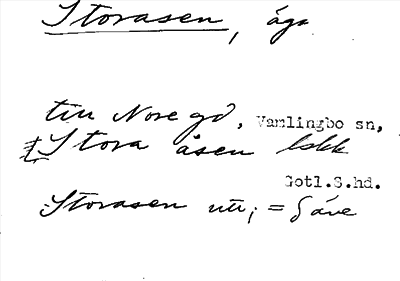 Storasen, äga
till Nore gd, Vamlingbo sn,
Stora åsen lskk
Gotl.S.hd.
Storasen utt; =